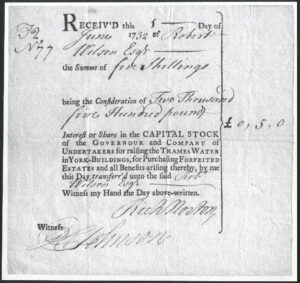 RECEIV'D this 1 Day of
June 1732 of Robert
Wilson Esqr
the Summe of five Shillings
being the Consideration of Two Thousand
five Hundred pounds
Interest or Share in the CAPITAL STOCK
of the GOVERNOUR and COMPANY of
UNDERTAKERS for raising the THAMES WATER
in YORK-BUILDINGS, for Purchasing FORFEITED
ESTATES and all Benefits arising thereby, by me
this Day transferr'd unto the said Robt
Wilson Esqr
Witness my Hand the Day above-written.
£ 0,5,0
Rich Norton
Witness
Johnson